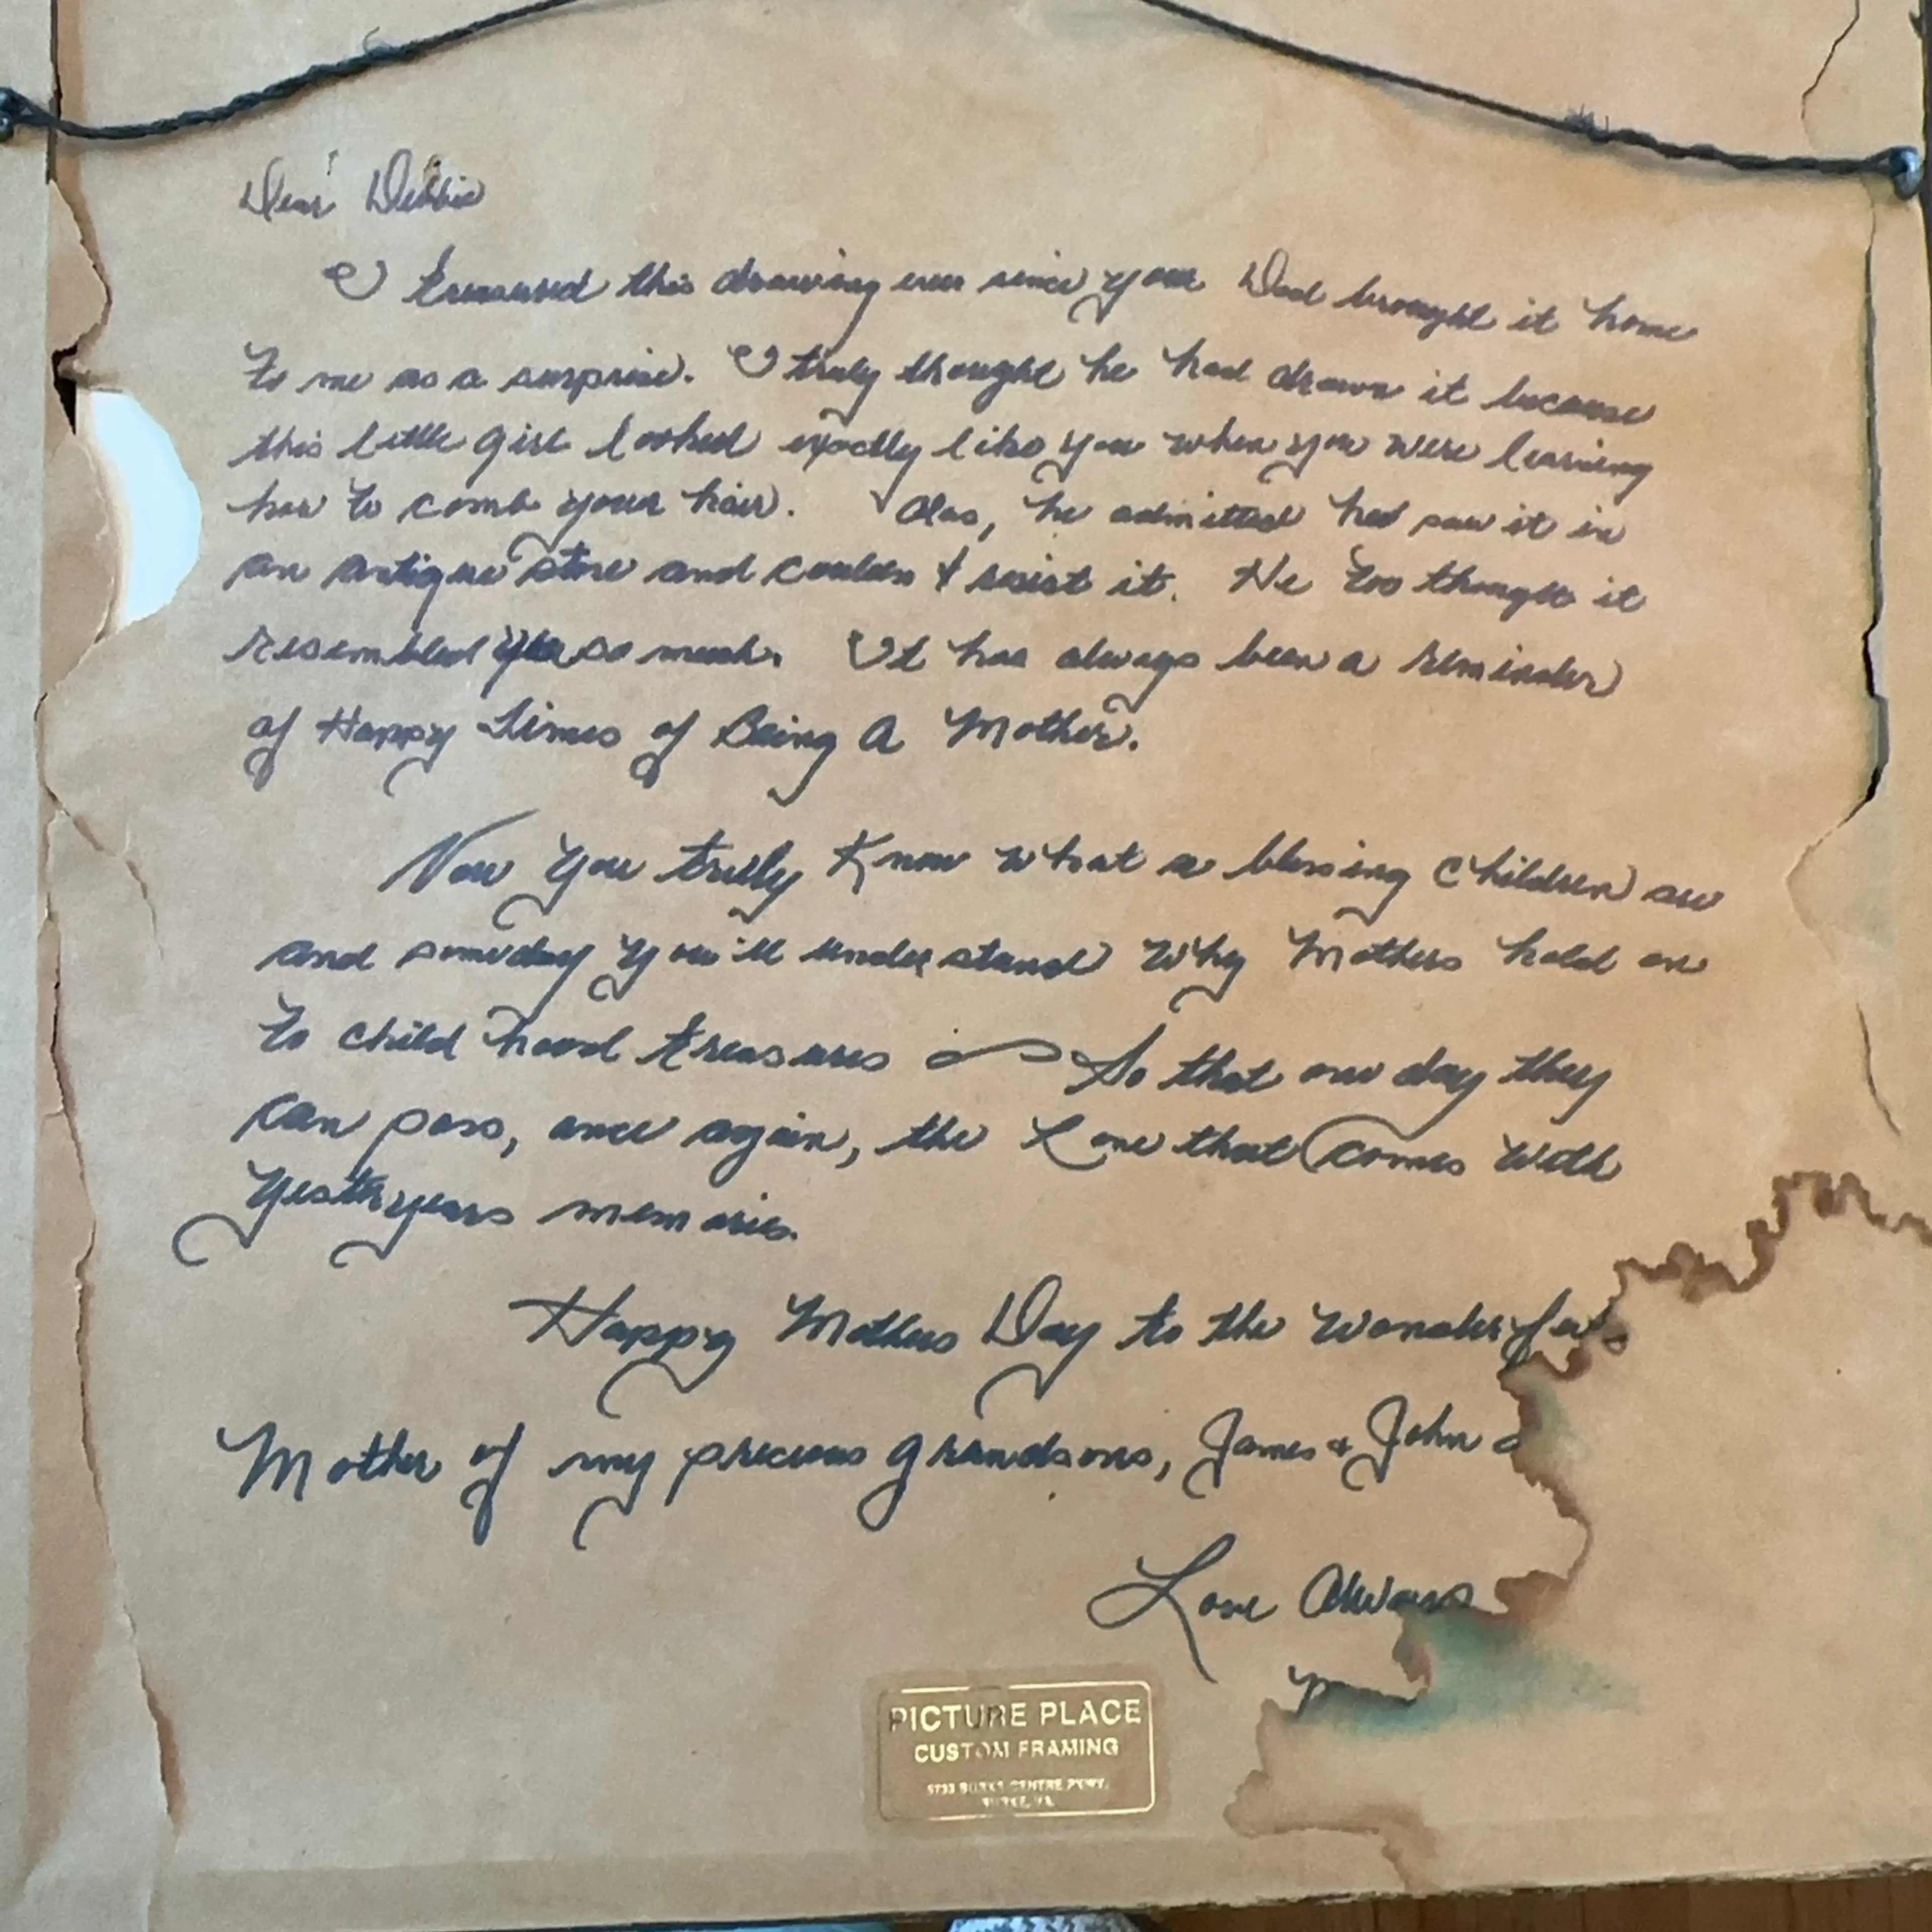 Dear Debbie
I treasured this drawing ever since your Dad brought it home
to me as a surprise. I truly thought he had drawn it because
this little girl looked exactly like you when you were learning
how to comb your hair. Alas, he admitted he'd saw it in
an antique store and couldn't resist it. He too thought it
resembled you so much. It has always been a reminder
of Happy Times of Being A Mother.
Now you truly know what a blessing children are
and someday you'll understand why Mothers hold on
to childhood treasures So that one day they
can pass, once again, the Love that comes with
yesteryears memories.
Happy Mothers Day to the Wonderful
Mother of my precious grandsons, James & John
Love Always
PICTURE PLACE
CUSTOM FRAMING
5733 BURKE CENTRE PKWY.
BURKE, VA